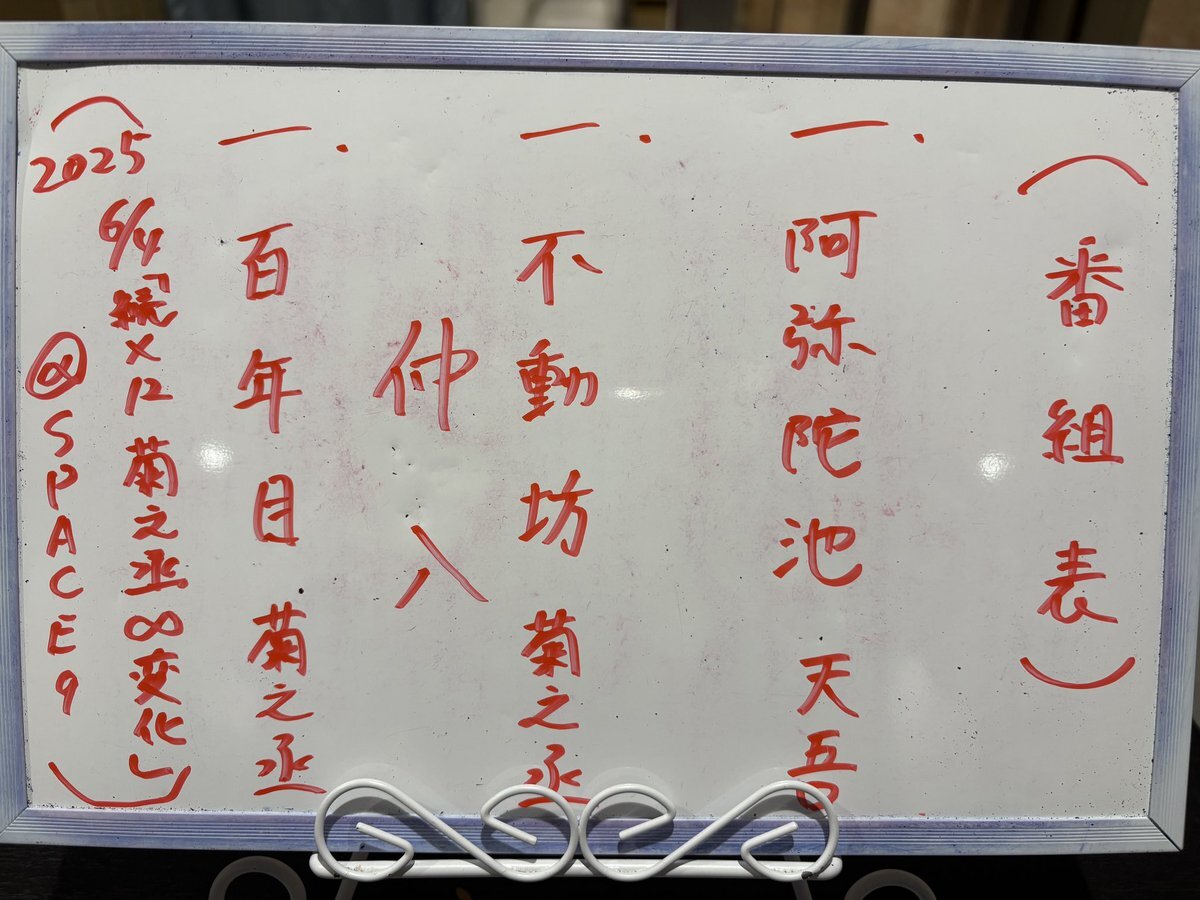 （番組表）
一．阿弥陀池 天吾
一．不動坊 菊之丞
仲入
一．百年目 菊之丞
（2025 6/4「続×12 菊之丞∞変化」
@SPACE9）